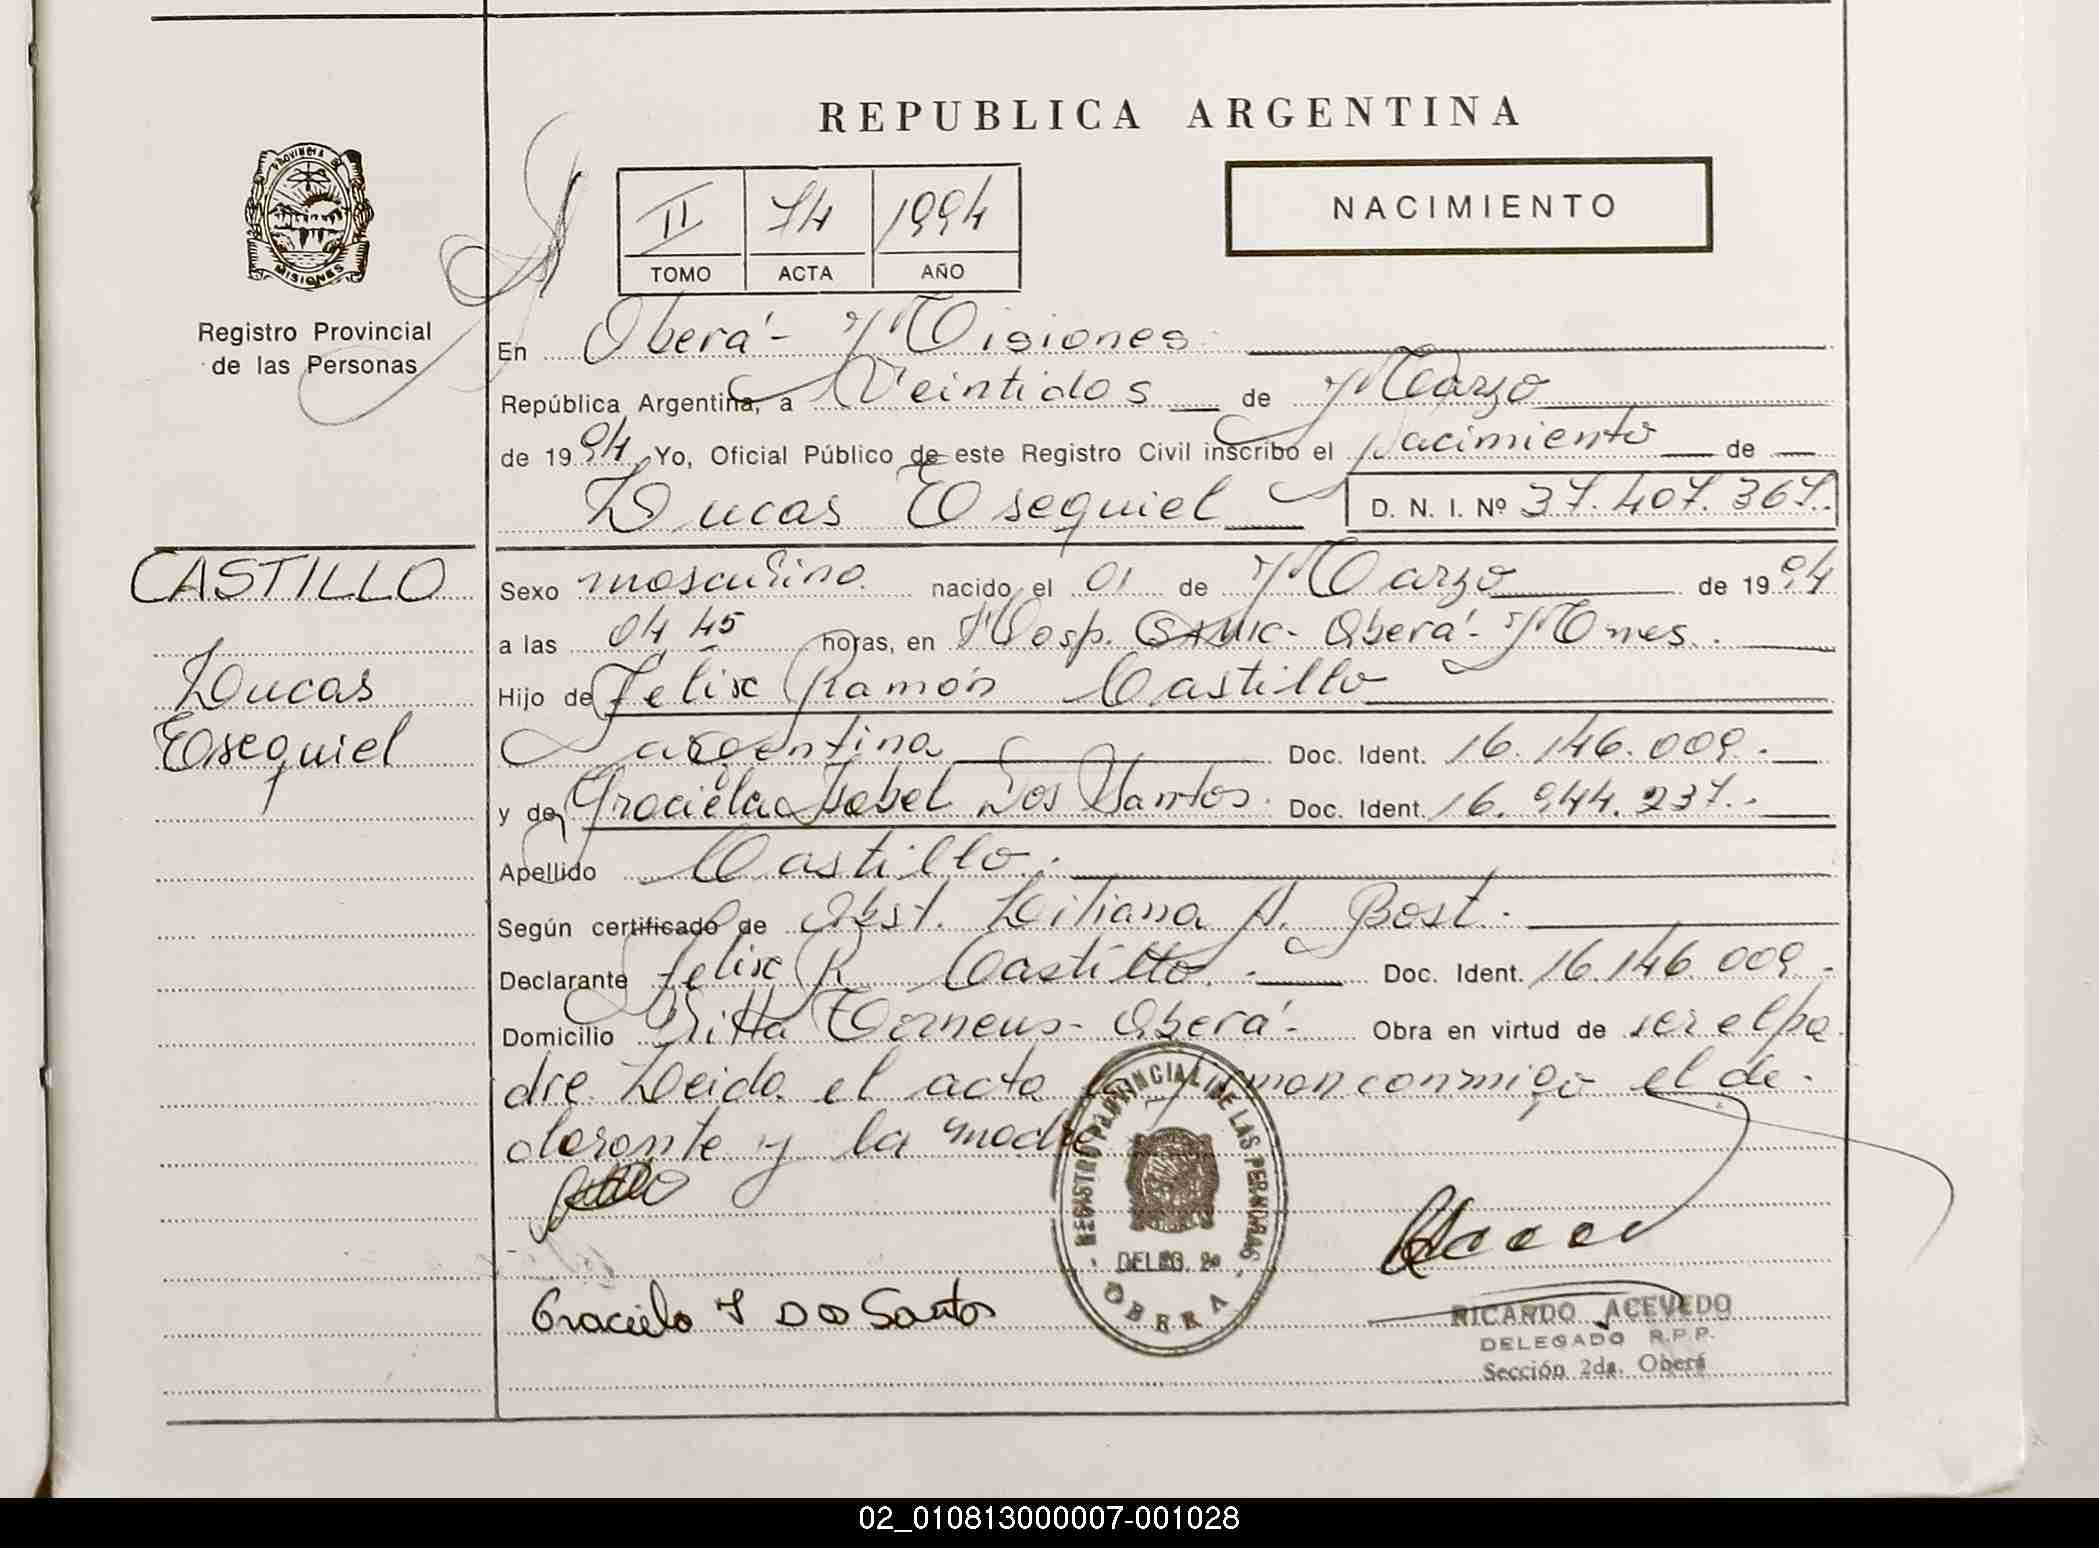 REPUBLICA ARGENTINA
PROVINCIA DE
MISIONES
Registro Provincial
de las Personas
II 74 1994
TOMO ACTA AÑO
NACIMIENTO
En Oberá - Misiones
República Argentina, a Veintidos de Marzo
de 1994 Yo, Oficial Público de este Registro Civil inscribo el Nacimiento de
Lucas Esequiel D. N. I. Nº 37.407.367.
CASTILLO
Lucas
Esequiel
Sexo masculino. nacido el 01 de Marzo de 1994
a las 04,45 horas, en Hosp. Oberá - Mnes.
Hijo de Felix Ramón Castillo
argentina Doc. Ident. 16.146.009.
y de Graciela Isabel Dos Santos. Doc. Ident. 16.944.237.
Apellido Castillo.
Según certificado de Obst. Liliana A. Bost.
Declarante Felix R Castillo. Doc. Ident. 16.146.009.
Domicilio Villa Oberá - Obra en virtud de ser el pa
dre. Leida el acta firman conmigo el de-
clarante y la madre
REGISTRO PROVINCIAL DE LAS PERSONAS
DELEG. 2º
OBERA
Graciela I Dos Santos
RICARDO ACEVEDO
DELEGADO R.P.P.
Sección 2da. Oberá
02_010813000007-001028